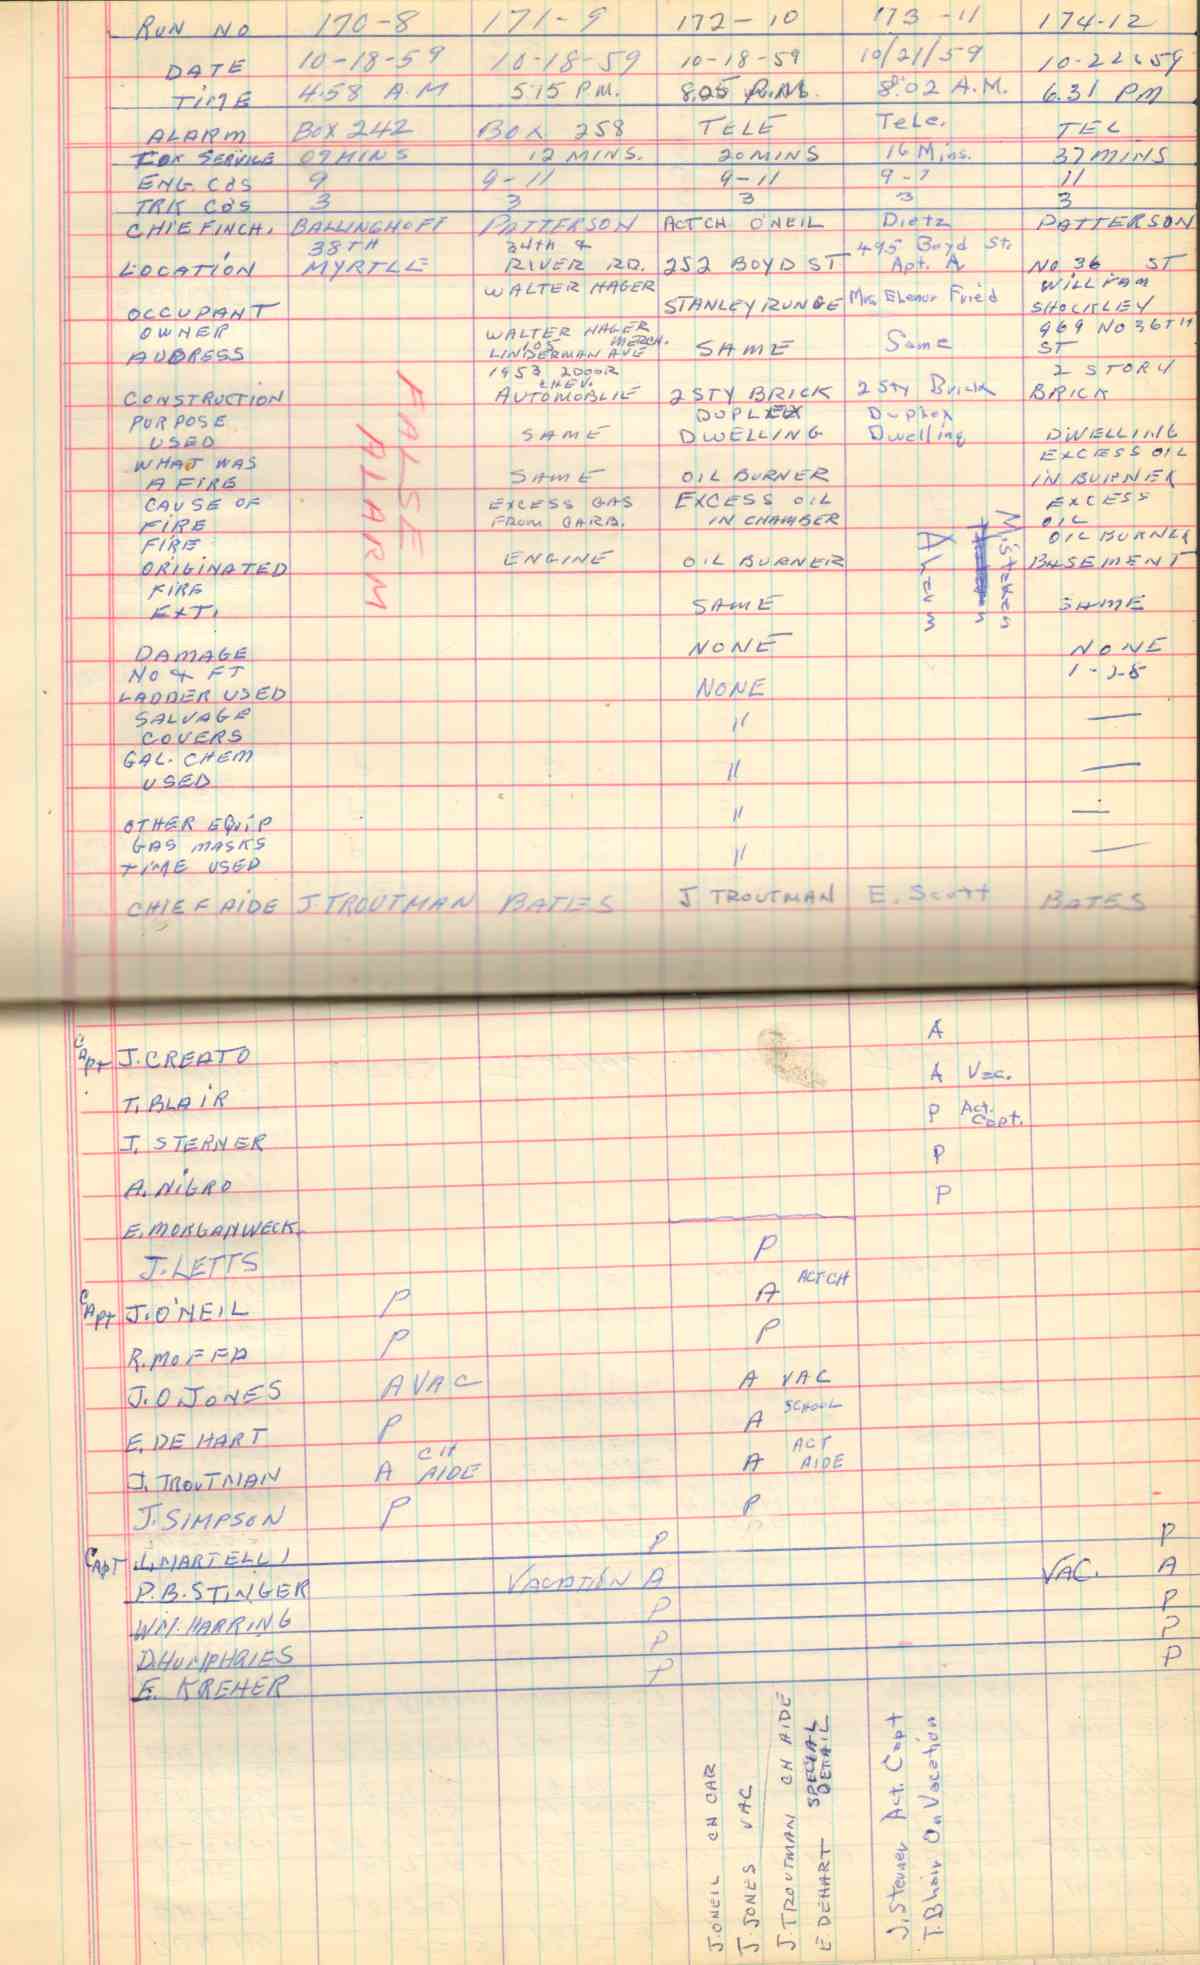 RUN NO 170-8 171-9 172-10 173-11 174-12
DATE 10-18-59 10-18-59 10-18-59 10/21/59 10-22-59
TIME 4:58 A.M 5:15 P.M. 8:05 8:02 A.M. 6:31 PM
ALARM BOX 242 BOX 258 TELE Tele. TEL
SERVICE 09 MINS 12 MINS. 20 MINS 16 Mins. 37 MINS
ENG. COS 9 9-11 9-11 9-7 11
TRK COS 3 3 3 3 3
CHIEF INCH. BALLINGHOFF PATTERSON ACTCH O'NEIL Dietz PATTERSON
38TH 34th & 495 Boyd St.
LOCATION MYRTLE RIVER RD. 252 BOYD ST Apt. A NO 36 ST
WALTER HAGER WILLIAM
OCCUPANT STANLEY RUNGE Mrs. Elenor Fried SHOCKLEY
OWNER WALTER HAGER 969 NO 36TH
105 MERCH.
ADDRESS LINDERMAN AVE SAME Same ST
1953 2DOOR 2 STORY
CHEV.
CONSTRUCTION AUTOMOBLIE 2 STY BRICK 2 Sty Brick BRICK
PURPOSE DUPLEX Duplex
USED SAME DWELLING Dwelling DWELLING
WHAT WAS EXCESS OIL
A FIRE SAME OIL BURNER IN BURNER
CAUSE OF EXCESS GAS EXCESS OIL EXCESS
FIRE FROM CARB. IN CHAMBER OIL
FIRE OIL BURNER
ORIGINATED ENGINE OIL BURNER BASEMENT
FIRE
EXT. SAME SAME
FALSE
ALARM
Mistaken
Alarm
DAMAGE NONE NONE
NO & FT 1-28
LADDER USED NONE
SALVAGE
COVERS " —
GAL. CHEM
USED " —
OTHER EQUIP " —
GAS MASKS
TIME USED " —
CHIEF AIDE J TROUTMAN BATES J TROUTMAN E. Scott BATES
CAPT J. CREATO A
T. BLAIR A Vac.
J. STERNER P Act. Capt.
A. NIGRO P
E. MORGANWECK. P
J. LETTS P
CAPT J. O'NEIL P A ACTCH
R. MOFFA P P
J. O. JONES A VAC A VAC
E. DE HART P A SCHOOL
J. TROUTMAN A CH AIDE A ACT AIDE
J. SIMPSON P P
CAPT L. MARTELLI P P
P. B. STINGER VACATION A VAC. A
WM. HARRING P P
D. HUMPHRIES P P
E. KREHER P P
J. ONEIL CH CAR
J. JONES VAC
J. TROUTMAN CH AIDE
E. DEHART SPECIAL DETAIL
J. Sterner Act. Capt
T. Blair On Vacation